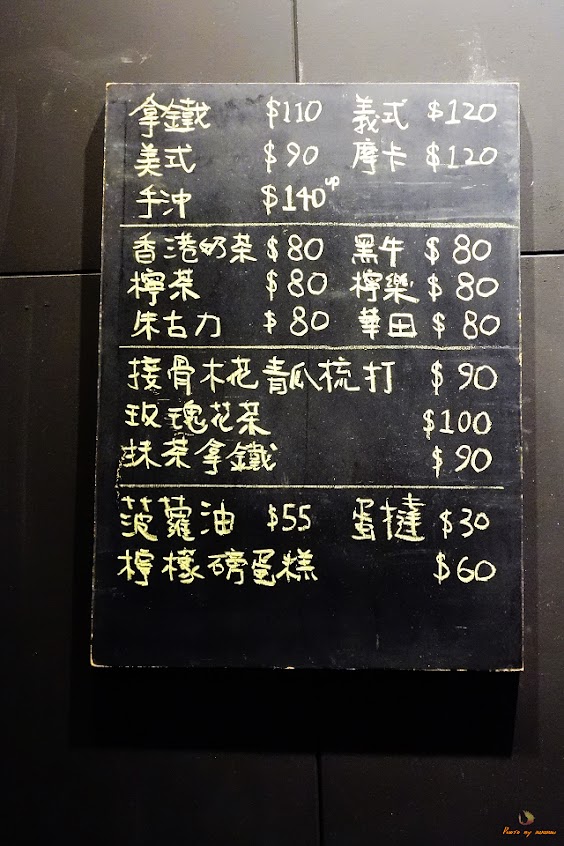 拿鐵 $110 義式 $120
美式 $90 摩卡 $120
手沖 $140up
香港奶茶 $80 黑牛 $80
檸茶 $80 檸樂 $80
朱古力 $80 華田 $80
接骨木花青瓜梳打 $90
玫瑰花茶 $100
抹茶拿鐵 $90
菠蘿油 $55 蛋撻 $30
檸檬磅蛋糕 $60